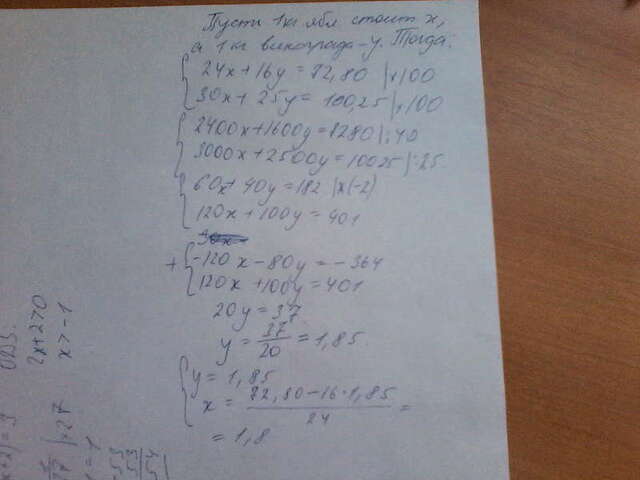 Пусть 1 кг ябл стоит x,
а 1 кг винограда – y. Тогда:
24x + 16y = 72,80 | x100
30x + 25y = 100,25 | x100
2400x + 1600y = 7280 | :40
3000x + 2500y = 10025 | :25
60x + 40y = 182 | x(-2)
120x + 100y = 401
+ -120x - 80y = -364
120x + 100y = 401
20y = 37
y = 37/20 = 1,85
y = 1,85
x = 72,80 - 16 · 1,85 / 24 =
= 1,8
ОДЗ:
2x+2>0
x > -1